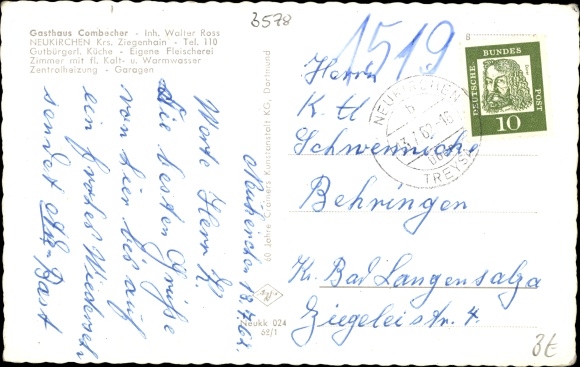 3578
Gasthaus Combecher - Inh. Walter Ross
NEUKIRCHEN Krs. Ziegenhain - Tel. 110
Gutbürgerl. Küche - Eigene Fleischerei
Zimmer mit fl. Kalt- u. Warmwasser
Zentralheizung - Garagen
Neukirchen 13.7.62.
Werte Herr K.
Die besten Grüße
von hier bis auf
ein frohes Wiedersehn
sendet
60 Jahre Cramers Kunstanstalt KG. Dortmund
Neukk 024
62/1
1519
8
DEUTSCHE BUNDES POST
10
NEUKIRCHEN
TREYSA
Herrn
K. U
Schwennicke
Behringen
Kr. Bad Langensalza
Ziegeleistr. 4
3E